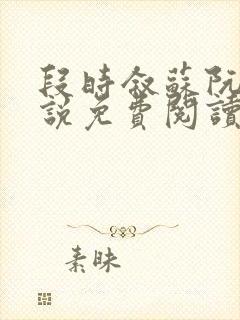 段時叙蘇阮
說免費閱讀
素昧